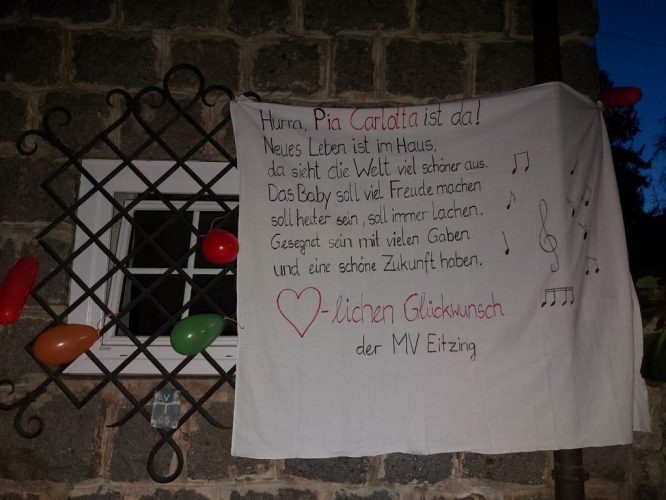 Hurra, Pia Carlotta ist da!
Neues Leben ist im Haus,
da sieht die Welt viel schöner aus.
Das Baby soll viel Freude machen
soll heiter sein, soll immer lachen.
Gesegnet sein mit vielen Gaben
und eine schöne Zukunft haben.
♡-lichen Glückwunsch
der MV Eitzing